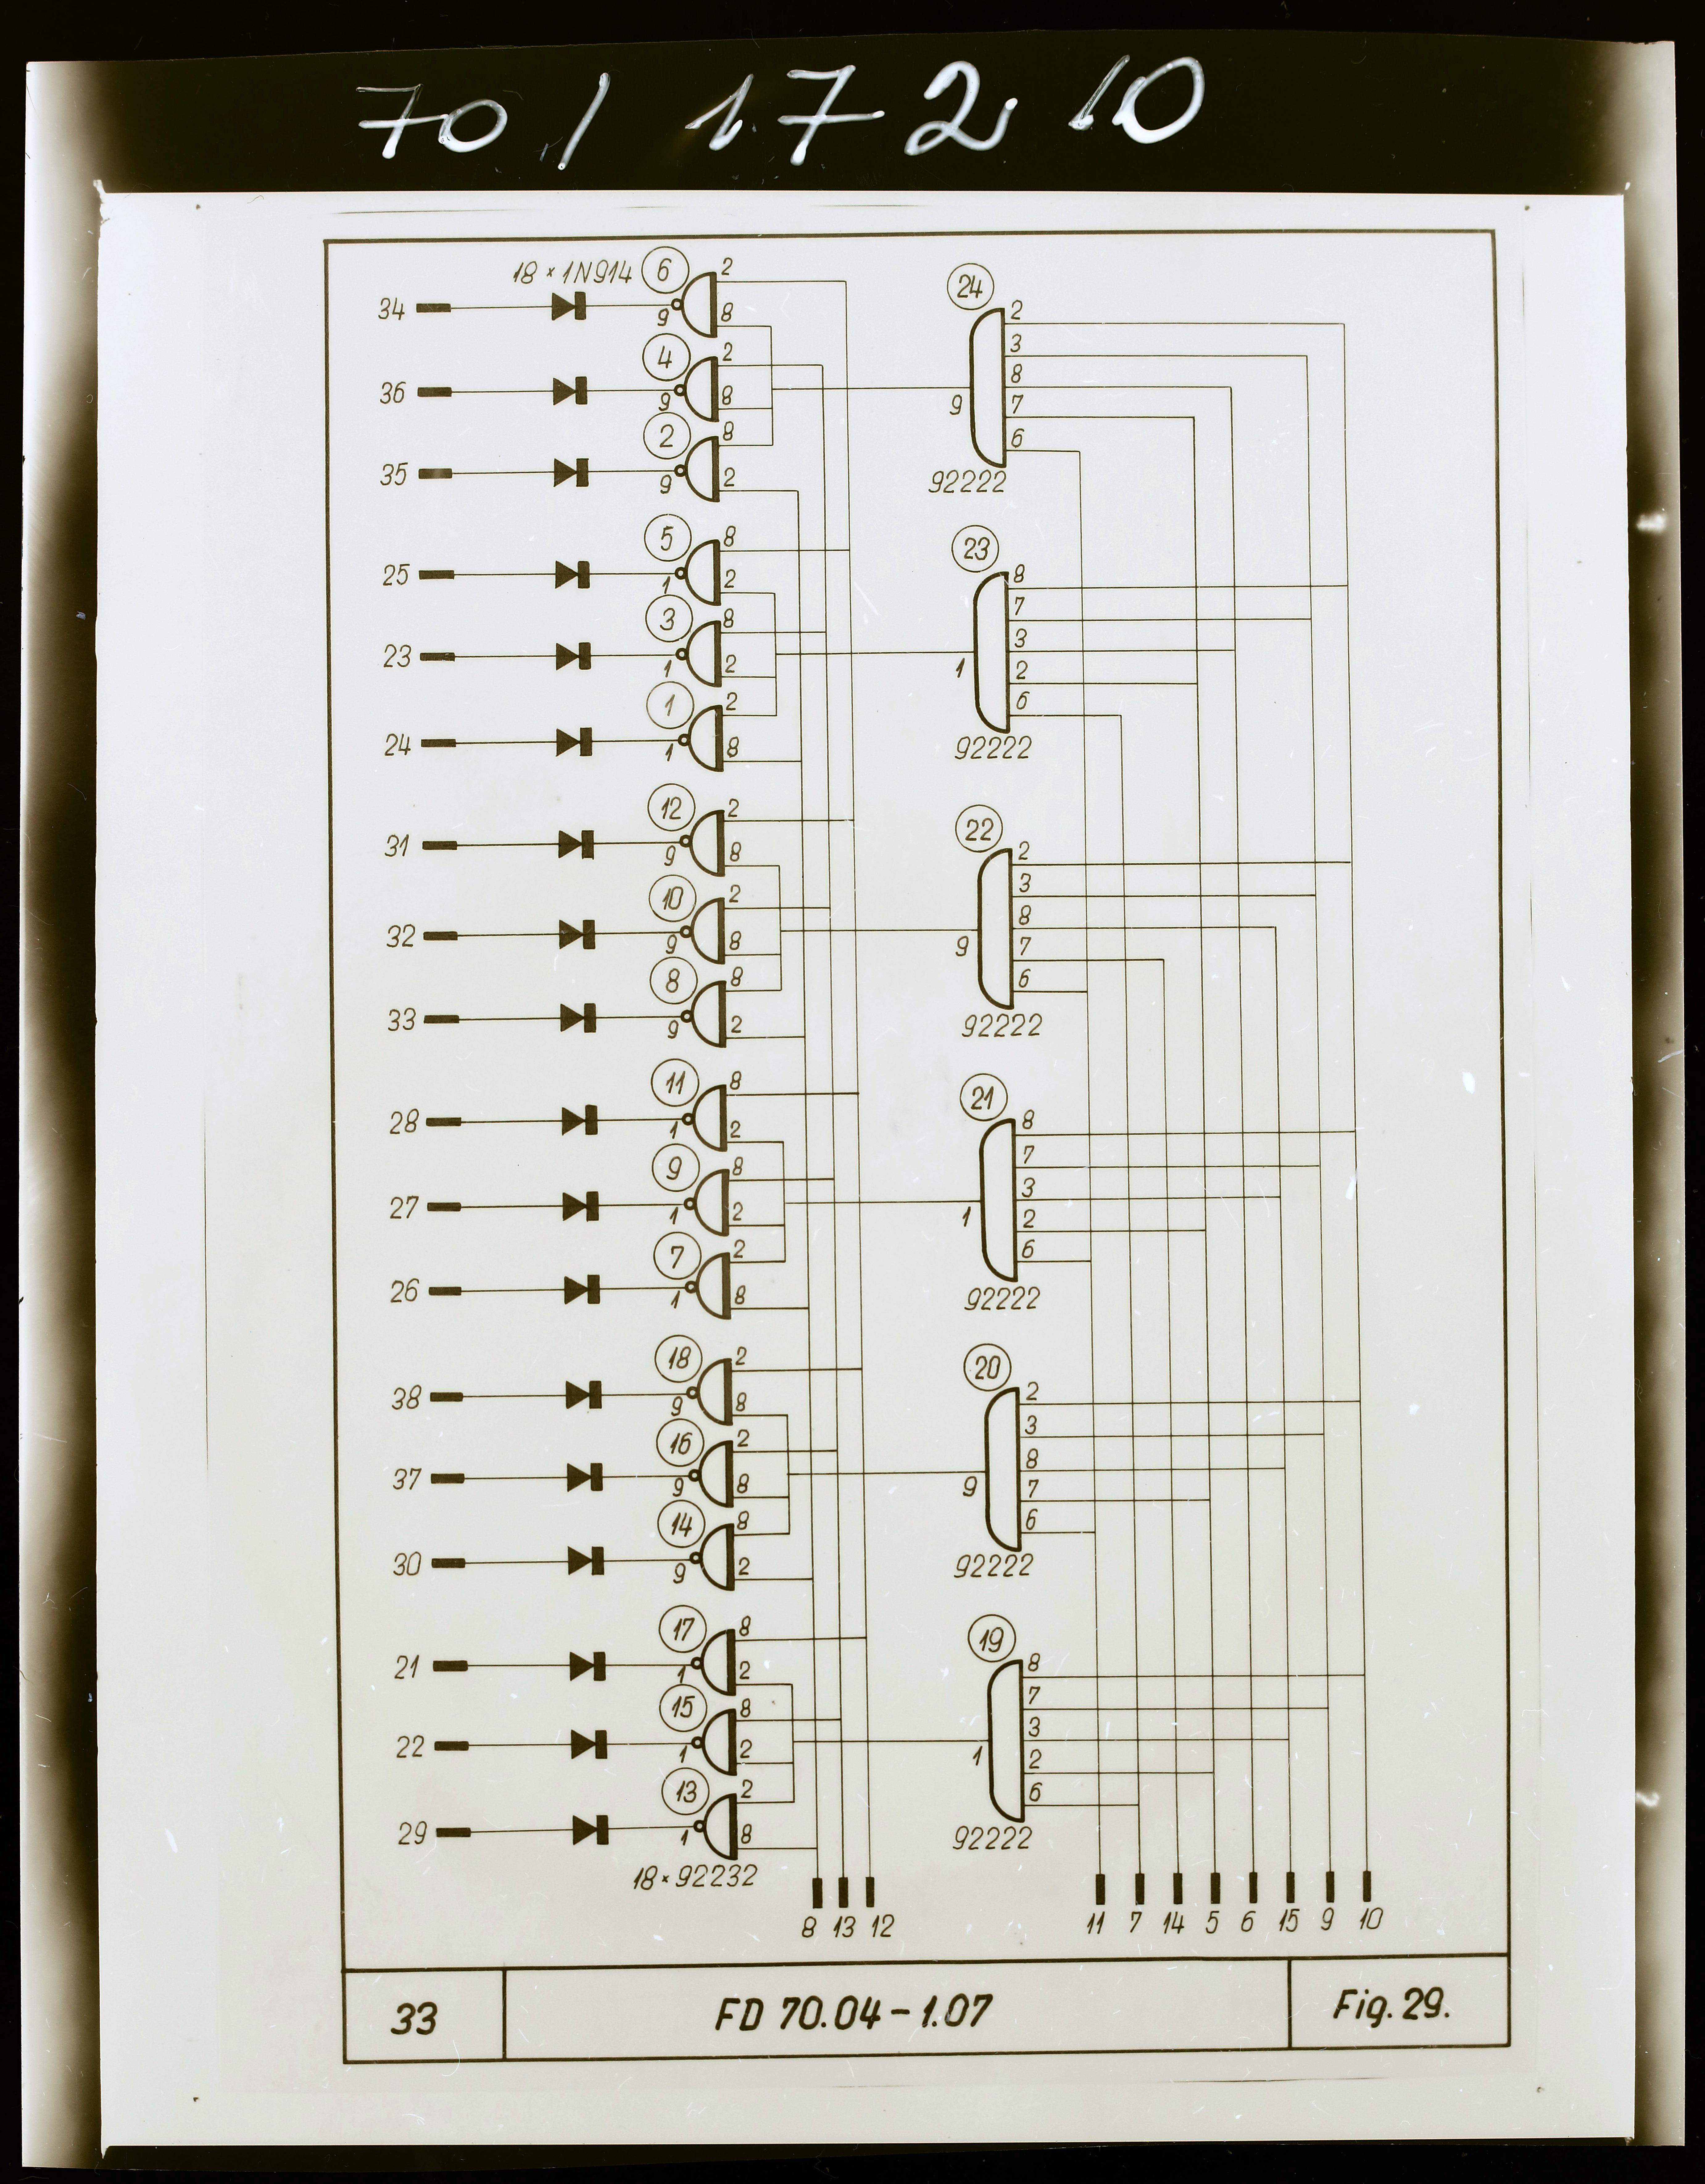 70/17210
18 × 1N914
6
2
34
9
8
4
2
36
9
8
2
8
35
9
2
24
2
3
8
9
7
6
92222
5
8
25
1
2
3
8
23
1
2
1
2
24
1
8
23
8
7
3
1
2
6
92222
12
2
31
9
8
10
2
32
9
8
8
8
33
9
2
22
2
3
8
9
7
6
92222
11
8
28
1
2
9
8
27
1
2
7
2
26
1
8
21
8
7
3
1
2
6
92222
18
2
38
9
8
16
2
37
9
8
14
8
30
9
2
20
2
3
8
9
7
6
92222
17
8
21
1
2
15
8
22
1
2
13
2
29
1
8
18 × 92232
19
8
7
3
1
2
6
92222
8 13 12 11 7 14 5 6 15 9 10
33 FD 70.04 - 1.07 Fig. 29.